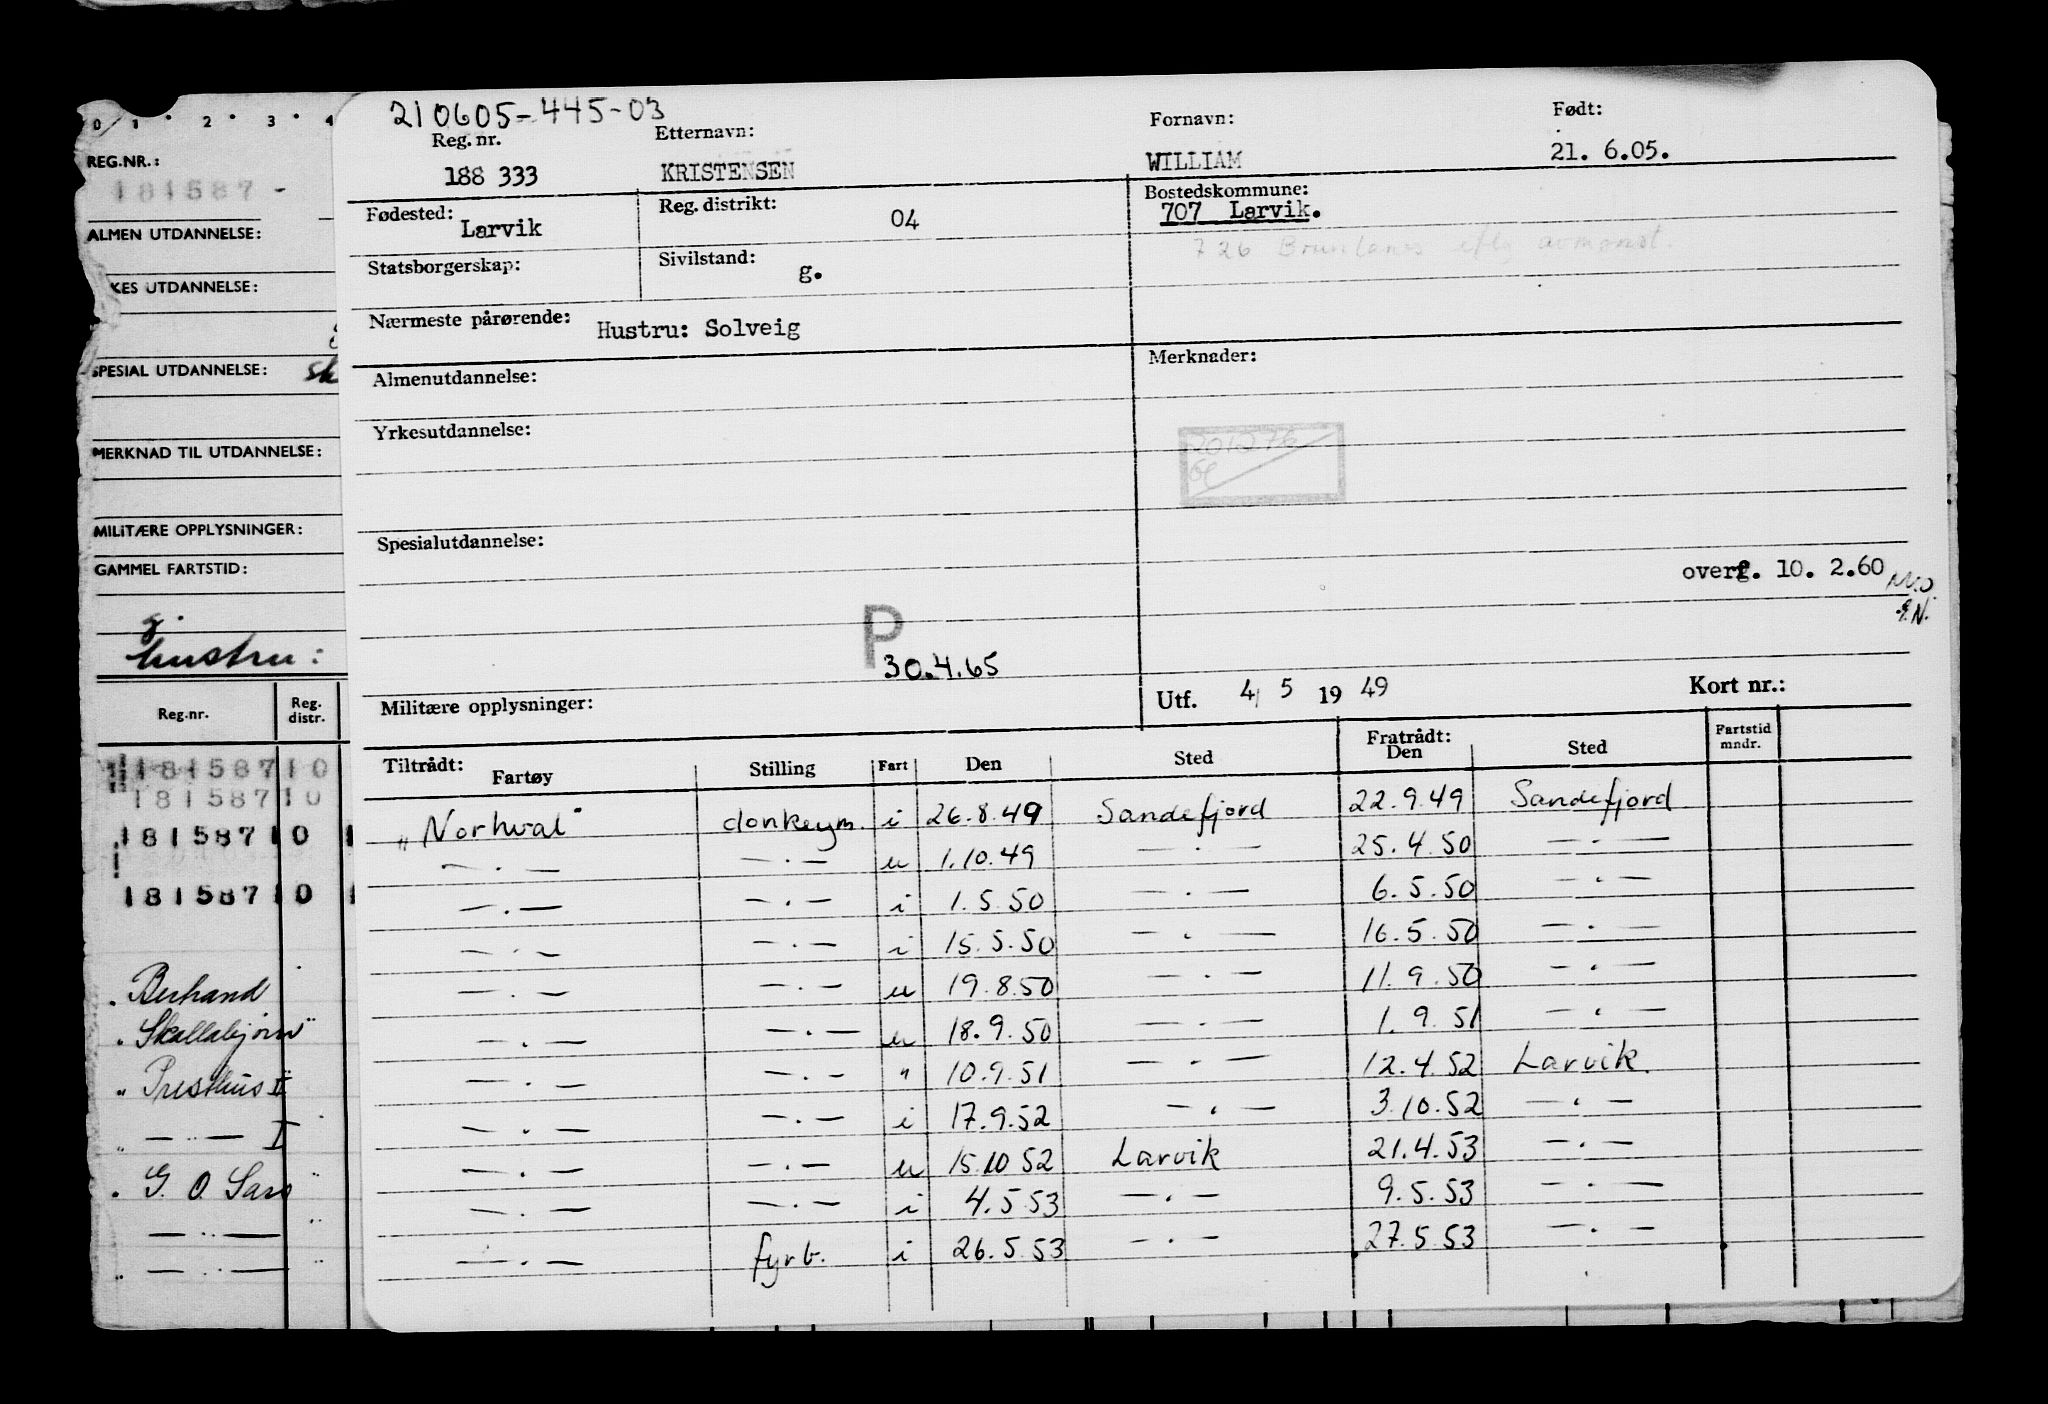 0 1 2 3 4
REG.NR.:
181587 -
ALMEN UTDANNELSE:
KES UTDANNELSE:
SPESIAL UTDANNELSE: sk
MERKNAD TIL UTDANNELSE:
MILITÆRE OPPLYSNINGER:
GAMMEL FARTSTID:
g.
hustru:
Reg.nr. Reg. distr.
181587 10
181587 10
181587 10
181587 10
Skallabjørn"
" Presthus II
" — " — I
" G. O Sars
— " —
" — " —
210605-445-03
Reg. nr. Etternavn: Fornavn: Født:
188 333 KRISTENSEN WILLIAM 21. 6.05.
Fødested: Larvik Reg. distrikt: 04 Bostedskommune: 707 Larvik.
726 Brunlanes iflg avmønst.
Statsborgerskap: Sivilstand: g.
Nærmeste pårørende: Hustru: Solveig
Almenutdannelse: Merknader:
Yrkesutdannelse:
201276
Spesialutdannelse:
overf. 10. 2.60
P
30.4.65
Militære opplysninger: Utf. 4 5 19 49 Kort nr.:
Tiltrådt: Fartøy Stilling Fart Den Sted Fratrådt: Den Sted Fartstid mndr.
"Norhval" donkeym. i 26.8.49 Sandefjord 22.9.49 Sandefjord
— . — — . — u 1.10.49 — . — 25.4.50 — . —
— . — — . — i 1.5.50 — . — 6.5.50 — . —
— . — — . — i 15.5.50 — . — 16.5.50 — . —
— . — — . — u 19.8.50 — . — 11.9.50 — . —
— . — — . — u 18.9.50 — . — 1.9.51 — . —
— . — — . — " 10.9.51 — . — 12.4.52 Larvik.
— . — — . — i 17.9.52 — . — 3.10.52 — . —
— . — — . — u 15.10 52 Larvik 21.4.53 — . —
— . — — . — i 4.5.53 — . — 9.5.53 — . —
— . — fyrb. i 26.5.53 — . — 27.5.53 — . —